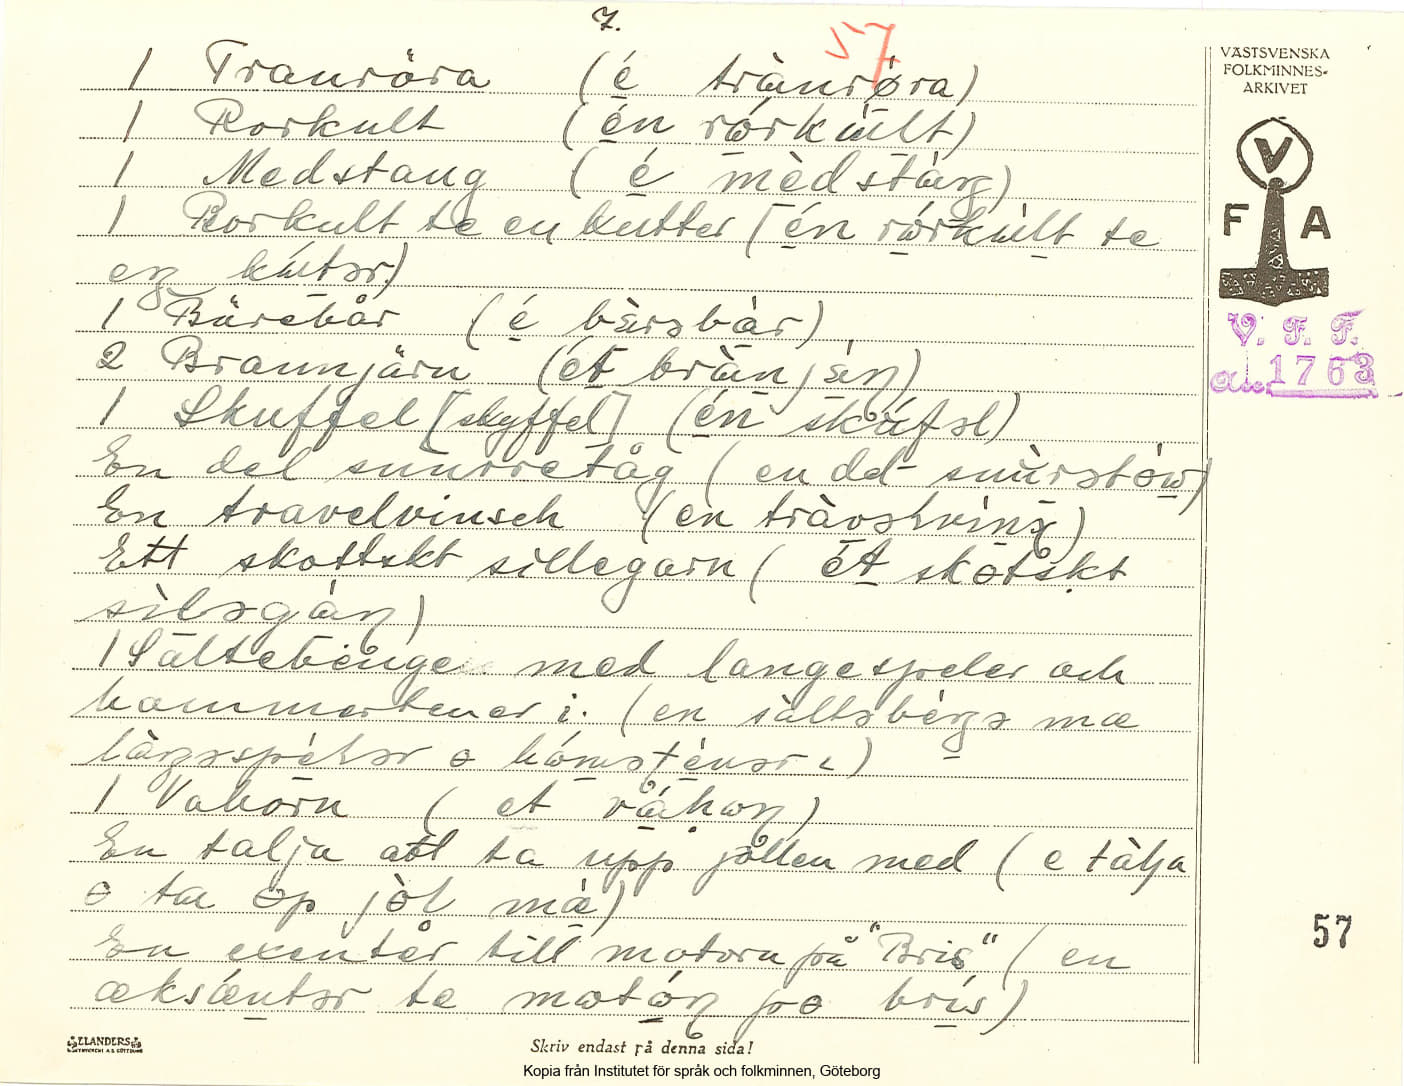 7.
57
1 Tranröra (é trànrøra)
1 Rorkult (én rórkúlt)
1 Medstang (é mèdstáŋ)
1 Rorkult te en kutter (én rórkúlt te
eŋ kútər)
1 Bärebår (é bærəbár)
2 Brannjärn (ét brànjæ̀ɳ)
1 Skuffel [skyffel] (én skúfəl)
En del snurretåg (en del snùrətóω)
En travelvinsch (en tràvəlvinʃ)
Ett skottskt sillegarn (ét skotskt
siləgáɳ)
1 Sältebenge med langespeler och
hammertener i. (en sæltəbéŋə mæ
làŋəspélər o hámərténər i)
1 Vahorn (et våhoɳ)
En talja att ta upp jollen med (e tàlja
o ta op jòl mæ)
En exenter till motorn på "Bris" (en
æksénter te motóɳ po brís)
VÄSTSVENSKA
FOLKMINNES-
ARKIVET
V
F A
V. F. F.
1763
57
ELANDERS
Skriv endast på denna sida!
Kopia från Institutet för språk och folkminnen, Göteborg